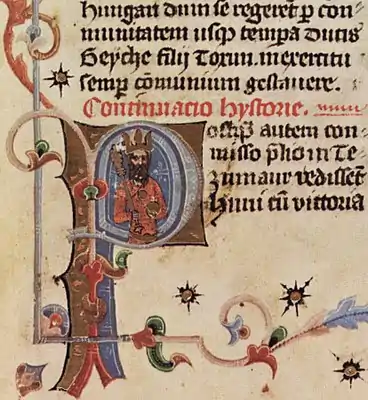 hungari dum se regerēt p con
munitatem usq; tempa ducis
Geyche filij Toxun in exercitu
semp cōmunium gestauere.
Continuacio hystorie.
Postq̄ autem con
misso p̄lio in Te
zunmaur redissēt
Huni cū victoria